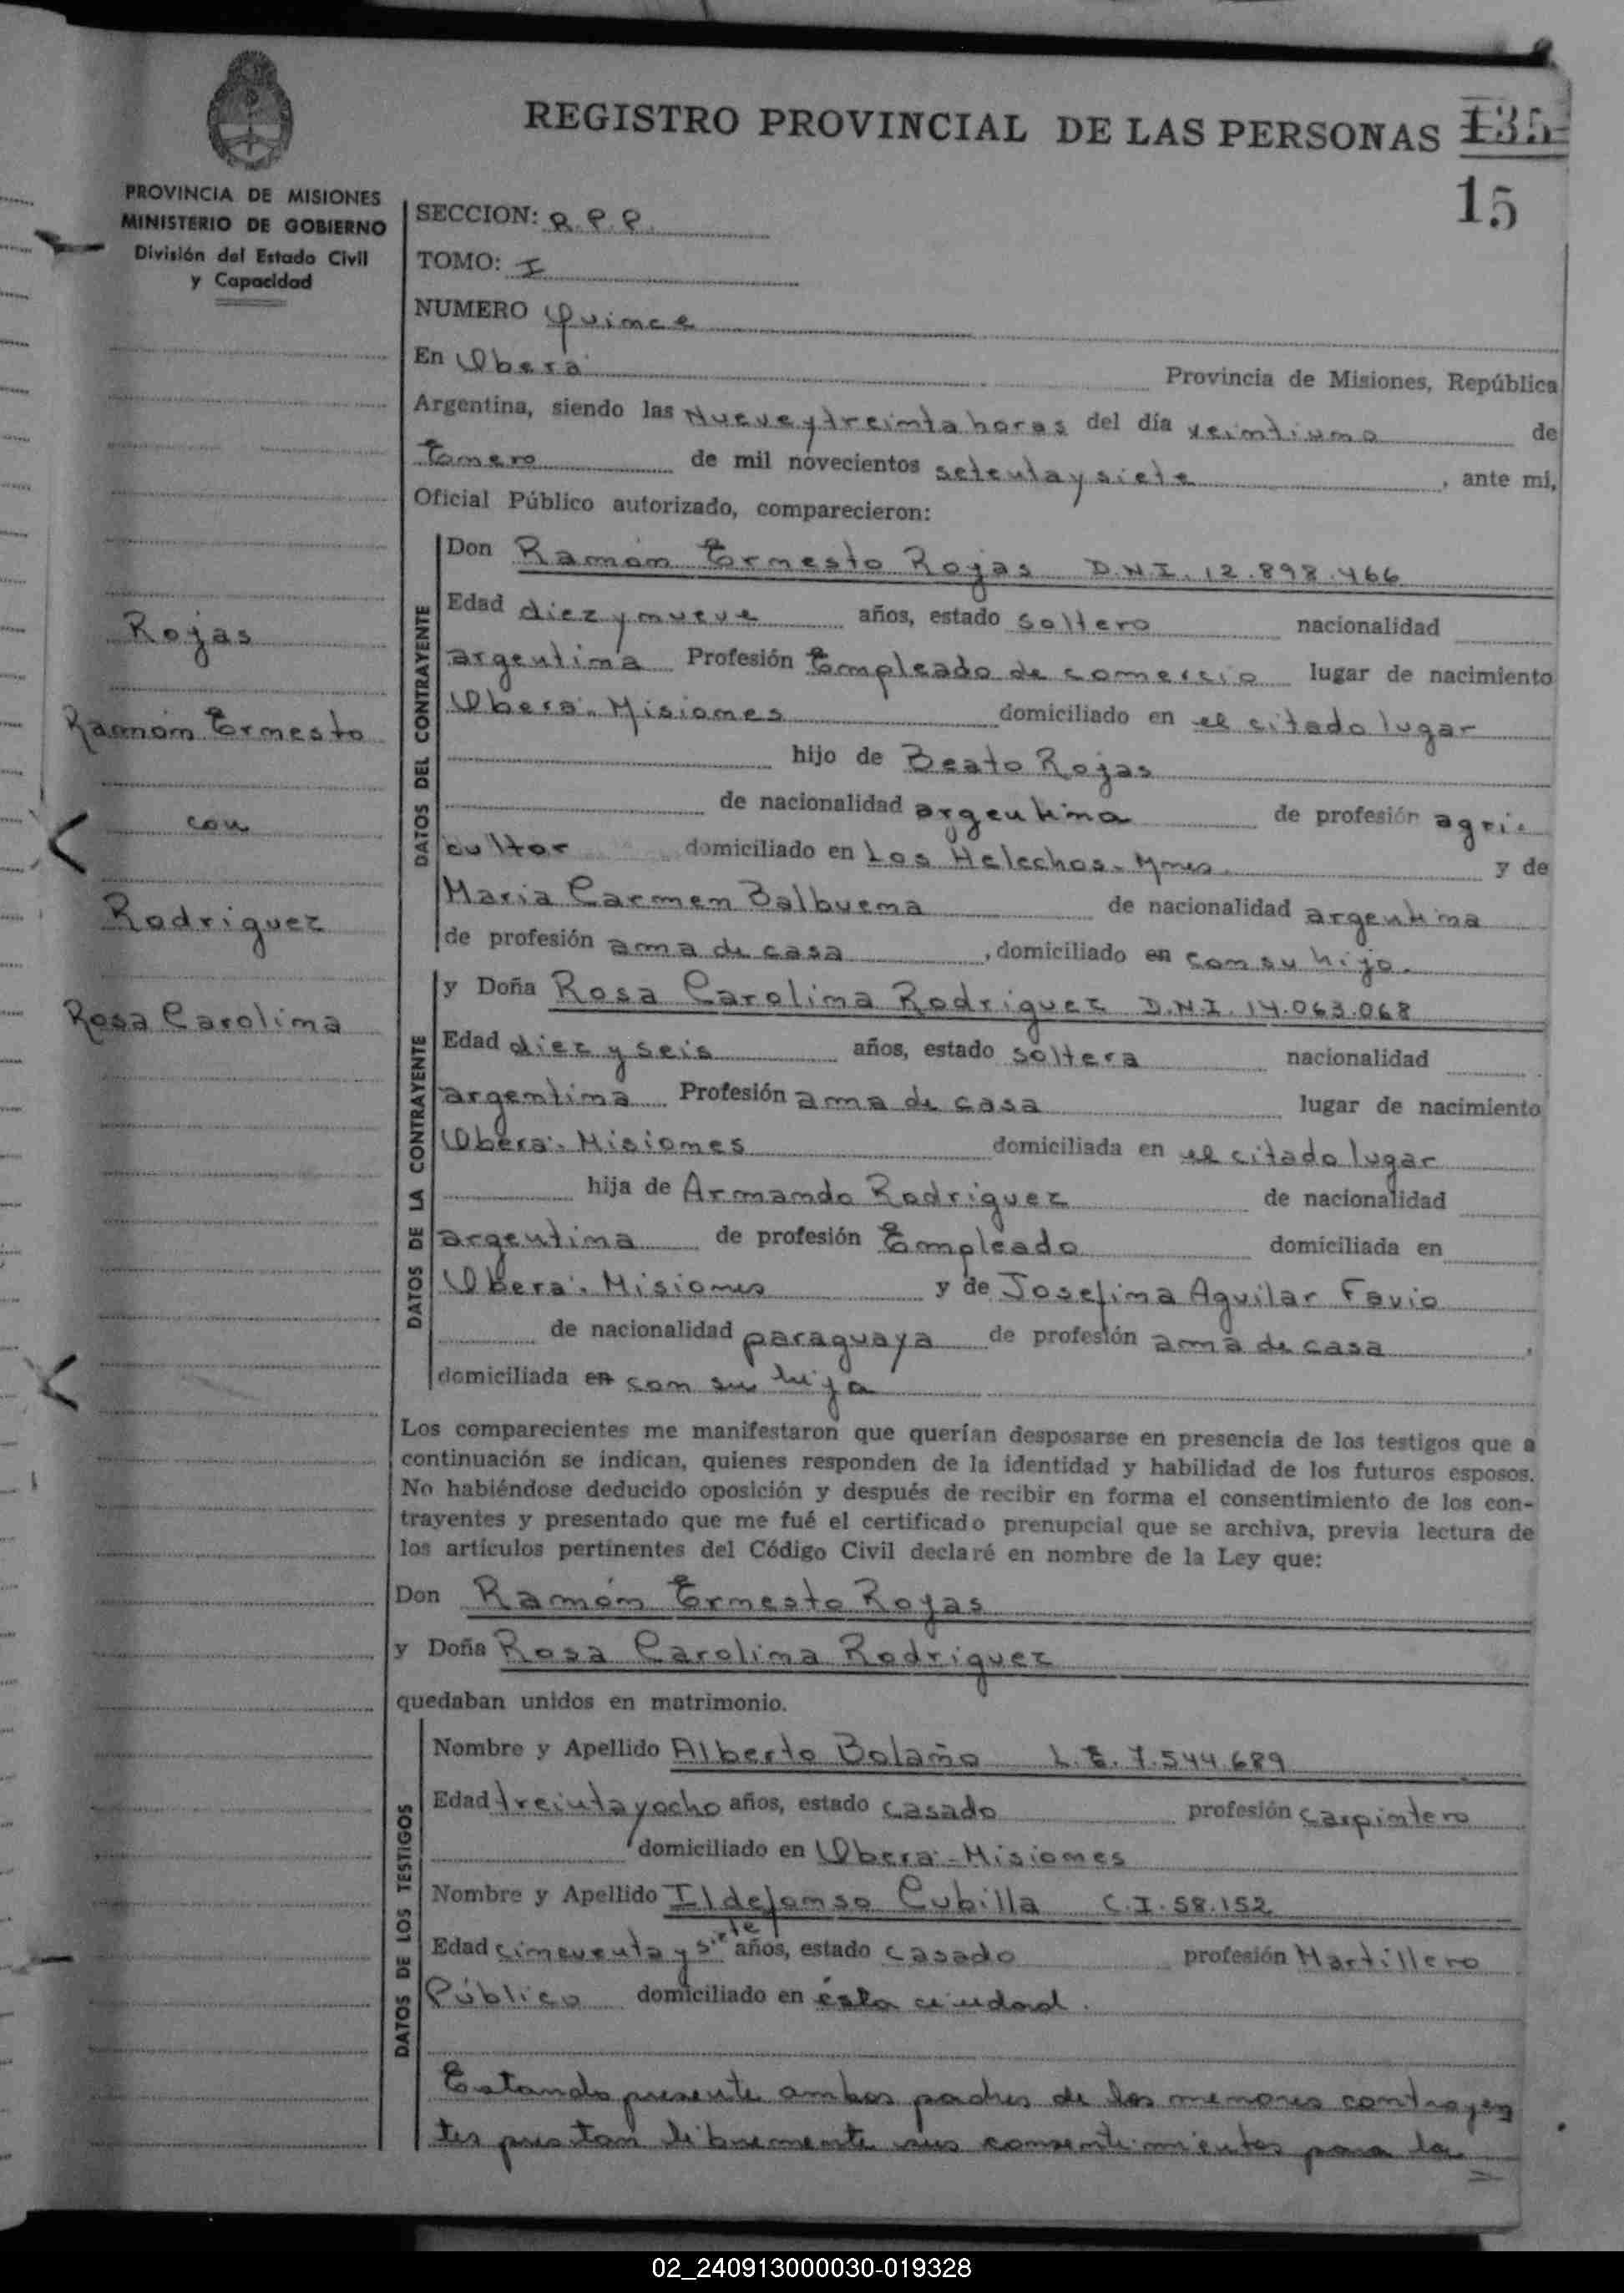 REGISTRO PROVINCIAL DE LAS PERSONAS 135
15
PROVINCIA DE MISIONES
MINISTERIO DE GOBIERNO
División del Estado Civil
y Capacidad
SECCION: R.P.P.
TOMO: I
NUMERO Quince
En Oberá Provincia de Misiones, República
Argentina, siendo las Nueve y treinta horas del día veintiuno de
Enero de mil novecientos setenta y siete, ante mi,
Oficial Público autorizado, comparecieron:
Rojas
Ramón Ernesto
con
Rodriguez
Rosa Carolina
DATOS DEL CONTRAYENTE
Don Ramón Ernesto Rojas D.N.I. 12.898.466
Edad diez y nueve años, estado soltero nacionalidad
argentina Profesión Empleado de comercio lugar de nacimiento
Oberá. Misiones domiciliado en el citado lugar
hijo de Beato Rojas
de nacionalidad argentina de profesión agri
cultor domiciliado en Los Helechos - Mnes. y de
Maria Carmen Balbuena de nacionalidad argentina
de profesión ama de casa, domiciliado en con su hijo.
DATOS DE LA CONTRAYENTE
y Doña Rosa Carolina Rodriguez D.N.I. 14.063.068
Edad diez y seis años, estado soltera nacionalidad
argentina Profesión ama de casa lugar de nacimiento
Oberá. Misiones domiciliada en el citado lugar
hija de Armando Rodriguez de nacionalidad
argentina de profesión Empleado domiciliada en
Oberá. Misiones y de Josefina Aguilar Favio
de nacionalidad paraguaya de profesión ama de casa,
domiciliada en con su hija
Los comparecientes me manifestaron que querían desposarse en presencia de los testigos que a
continuación se indican, quienes responden de la identidad y habilidad de los futuros esposos.
No habiéndose deducido oposición y después de recibir en forma el consentimiento de los con-
trayentes y presentado que me fué el certificado prenupcial que se archiva, previa lectura de
los artículos pertinentes del Código Civil declaré en nombre de la Ley que:
Don Ramón Ernesto Rojas
y Doña Rosa Carolina Rodriguez
quedaban unidos en matrimonio.
DATOS DE LOS TESTIGOS
Nombre y Apellido Alberto Bolaño L.E. 7.544.689
Edad treinta y ocho años, estado casado profesión carpintero
domiciliado en Oberá - Misiones
Nombre y Apellido Ildefonso Cubilla C.I. 58.152
Edad cincuenta y siete años, estado casado profesión Martillero
Público domiciliado en ésta ciudad.
Estando presente ambos padres de los menores contrayen
tes prestan libremente sus consentimientos para la
02_240913000030-019328